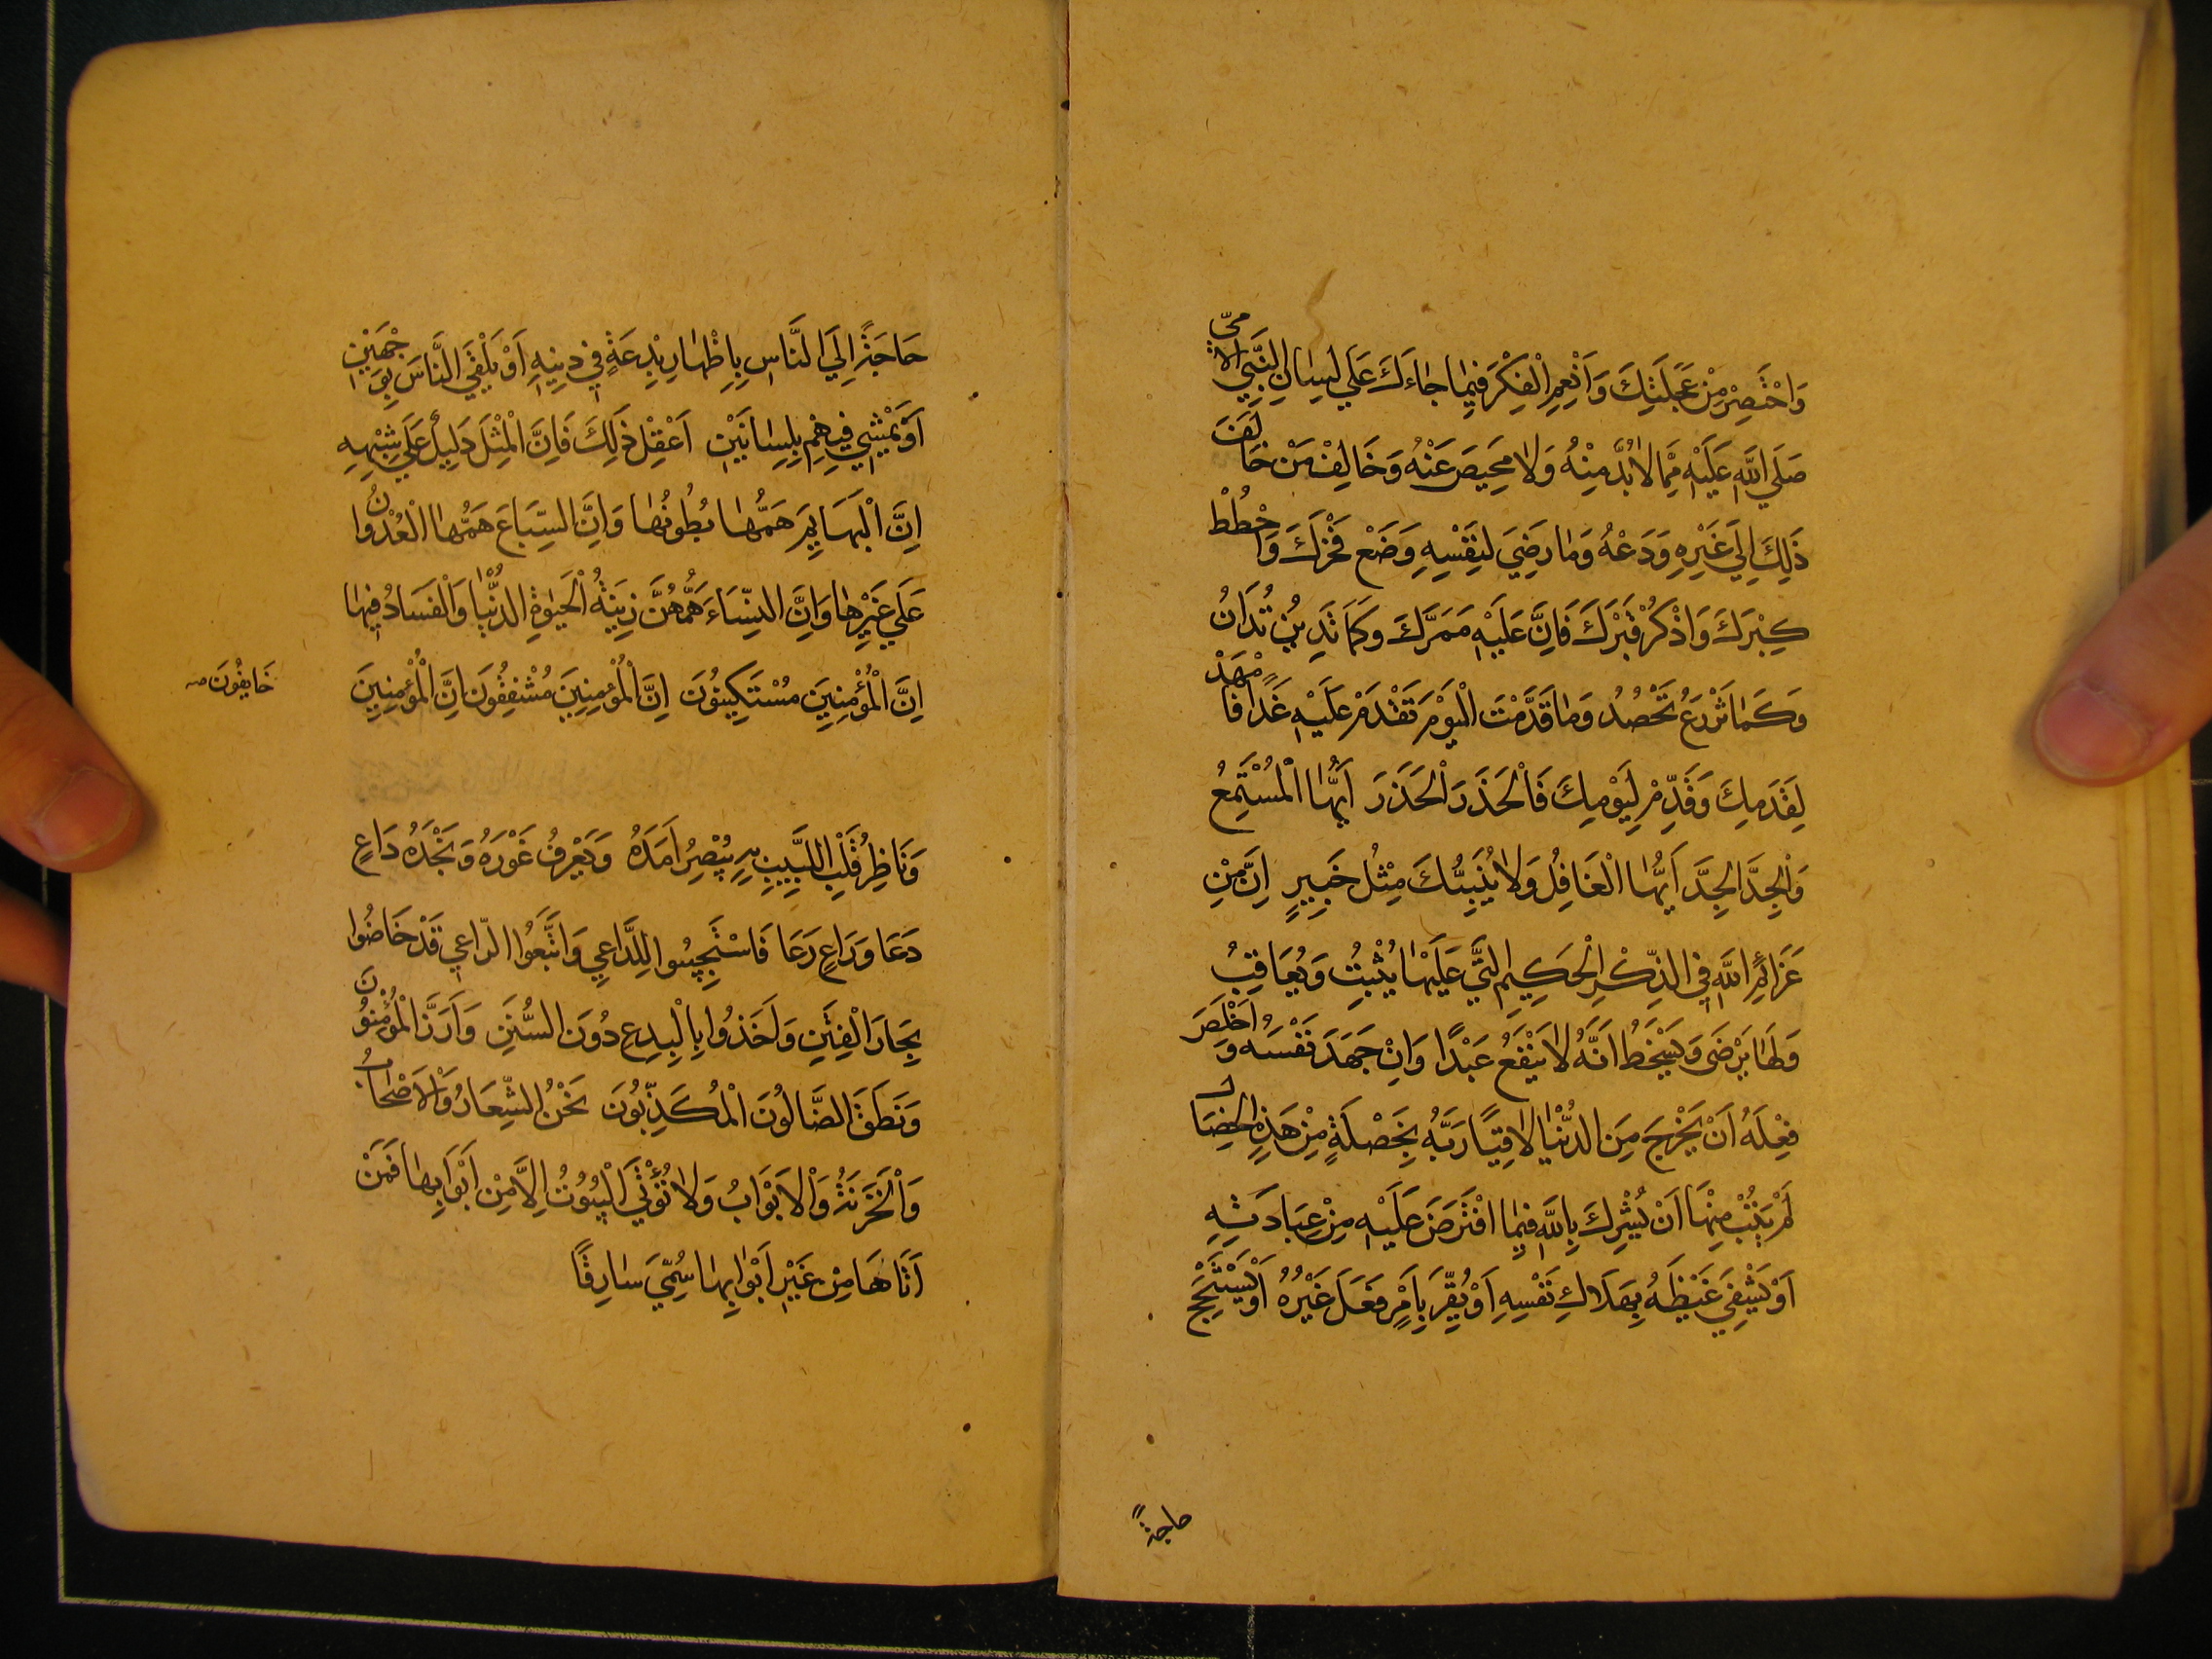 وَاخْتَصِرْ مِنْ عَجَلَتِكَ وَاَنْعِمِ الْفِكْرَ فِيمَا جَاءَكَ عَلَي لِسَانِ النَّبِيِّ الْاُمِّيِّ
صَلَي اللَّهِ عَلَيْهِ مِمَّا لَا بُدَّ مِنْهُ وَلَا مَحِيصَ عَنْهُ وَخَالِفْ مَنْ خَالَفَ
ذَلِكَ اِلَي غَيْرِهِ وَدَعْهُ وَمَا رَضِيَ لِنَفْسِهِ وَضَعْ فَخْرَكَ وَاحْطُطْ
كِبْرَكَ وَاذْكُرْ قَبْرَكَ فَاِنَّ عَلَيْهِ مَمَرَّكَ وَكَمَا تَدِينُ تُدَانُ
وَكَمَا تَزْرَعُ تَحْصُدُ وَمَا قَدَّمْتَ الْيَوْمَ تَقْدَمُ عَلَيْهِ غَدًا فَامْهَدْ
لِقَدَمِكَ وَقَدِّمْ لِيَوْمِكَ فَالْحَذَرَ الْحَذَرَ اَيُّهَا الْمُسْتَمِعُ
وَالْجِدَّ الْجِدَّ اَيُّهَا الْغَافِلُ وَلَا يُنَبِّئُكَ مِثْلُ خَبِيرٍ اِنَّ مِنْ
عَزَائِمِ اللَّهِ فِي الذِّكْرِ الْحَكِيمِ الَّتِي عَلَيْهَا يُثْبِتُ وَيُعَاقِبُ
وَلَهَا يَرْضَى وَيَسْخَطُ اَنَّهُ لَا يَنْفَعُ عَبْدًا وَاِنْ جَهَدَ نَفْسَهُ وَاَخْلَصَ
فِعْلَهُ اَنْ يَخْرُجَ مِنَ الدُّنْيَا لَاقِيًا رَبَّهُ بِخَصْلَةٍ مِنْ هَذِهِ الْخِصَالِ
لَمْ يَتُبْ مِنْهَا اَنْ يُشْرِكَ بِاللَّهِ فِيمَا افْتَرَضَ عَلَيْهِ مِنْ عِبَادَتِهِ
اَوْ يَشْفِيَ غَيْظَهُ بِهَلَاكِ نَفْسِهِ اَوْ يُقِرَّ بِاَمْرٍ فَعَلَ غَيْرُهُ اَوْ يَسْتَنْجِحَ
حاجةً
حَاجَةً اِلَي النَّاسِ بِاِظْهَارِ بِدْعَةٍ فِي دِينِهِ اَوْ يَلْقَي النَّاسَ بِوَجْهَيْنِ
اَوْ يَمْشِي فِيهِمْ بِلِسَانَيْنِ اَعْقِلْ ذَلِكَ فَاِنَّ الْمِثْلَ دَلِيلٌ عَلَي شِبْهِهِ
اِنَّ الْبَهَايِمَ هَمُّهَا بُطُونُهَا وَاِنَّ السِّبَاعَ هَمُّهَا الْعُدْوَانُ
عَلَي غَيْرِهَا وَاِنَّ النِّسَاءَ هَمُّهُنَّ زِينَةُ الْحَيٰوةِ الدُّنْيَا وَالْفَسَادُ فِيهَا
اِنَّ الْمُؤْمِنِينَ مُسْتَكِينُونَ اِنَّ الْمُؤْمِنِينَ مُشْفِقُونَ اِنَّ الْمُؤْمِنِينَ
خَايِفُونَ
وَنَاظِرُ قَلْبِ اللَّبِيبِ بِهِ يُبْصِرُ اَمَدَهُ وَيَعْرِفُ غَوْرَهُ وَنَجْدَهُ دَاعٍ
دَعَا وَرَاعٍ رَعَا فَاسْتَجِيبُوا لِلدَّاعِي وَاتَّبَعُوا الرَّاعِي قَدْ خَاضُوا
بِحَارَ الْفِتَنِ وَاَخَذُوا بِالْبِدَعِ دُونَ السُّنَنِ وَاَرَزَ الْمُؤْمِنُونَ
وَنَطَقَ الضَّالُونَ الْمُكَذِّبُونَ نَحْنُ الشِّعَارُ وَالْاَصْحَابُ
وَالْخَزَنَةُ وَالْاَبْوَابُ وَلَا تُؤْتَي الْبُيُوتُ اِلَّا مِنْ اَبْوَابِهَا فَمَنْ
اَتَاهَا مِنْ غَيْرِ اَبْوَابِهَا سُمِّيَ سَارِقًا